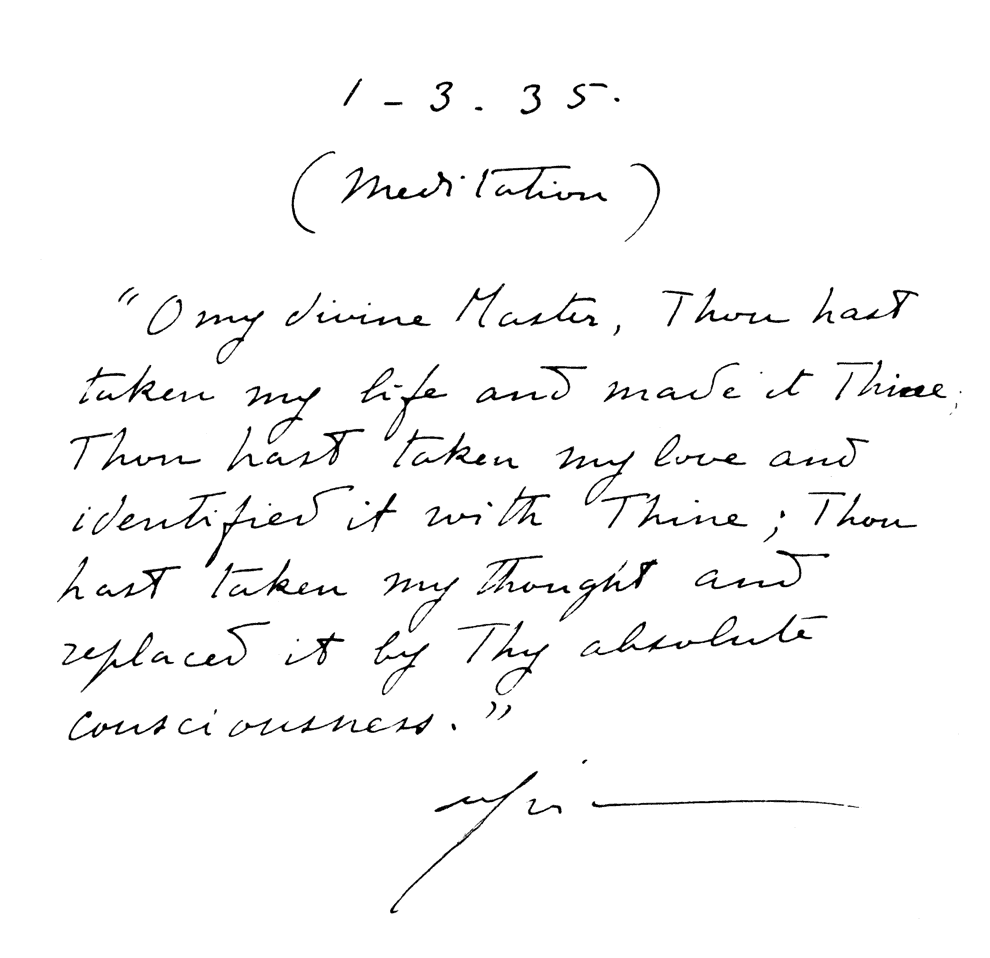 1 - 3. 35.
(Meditation)
"O my divine Master, Thou hast
taken my life and made it Thine;
Thou hast taken my love and
identified it with Thine; Thou
hast taken my thought and
replaced it by Thy absolute
consciousness."